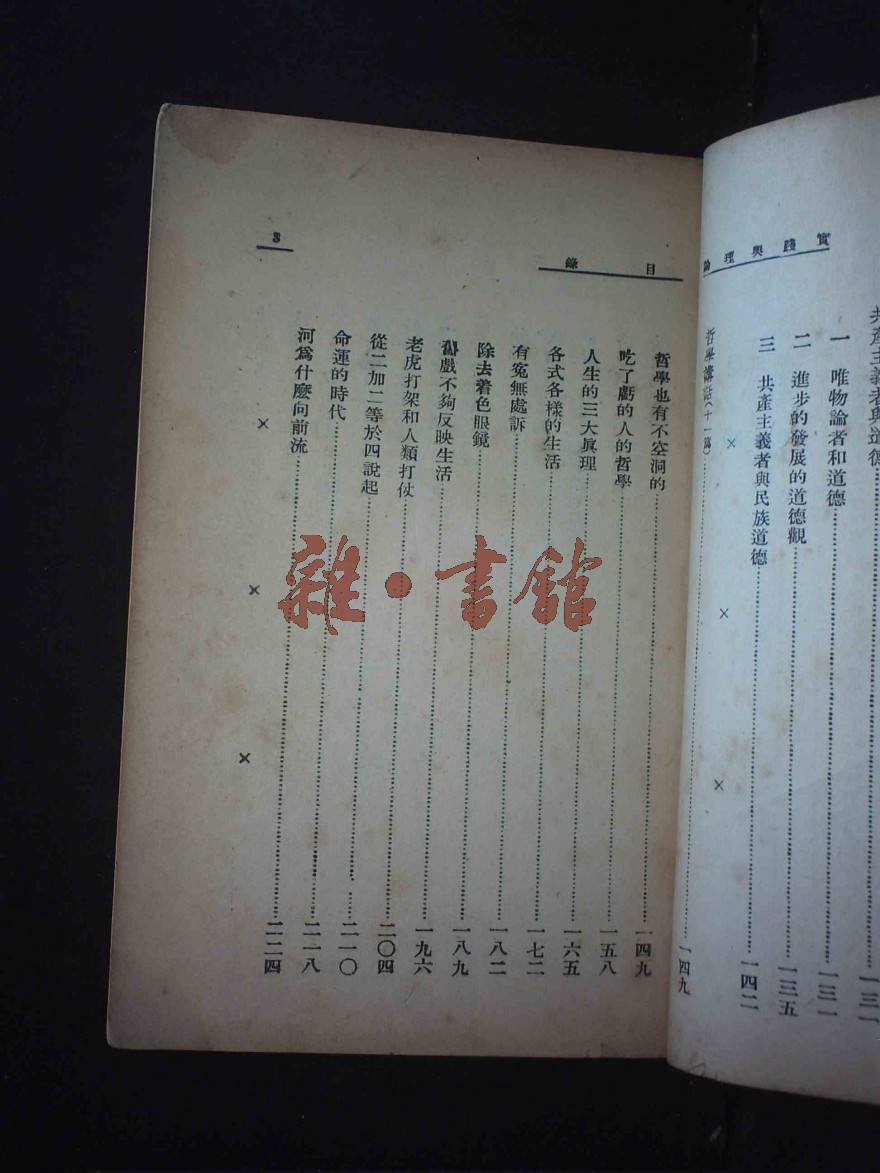 實踐與理論
共產主義者與道德 一三一
一 唯物論者和道德 一三一
二 進步的發展的道德觀 一三五
三 共產主義者與民族道德 一四二
× × ×
哲學講話(十一篇) 一四九
目錄
3
哲學也有不空洞的 一四九
吃了虧的人的哲學 一五八
人生的三大真理 一六五
各式各樣的生活 一七二
有冤無處訴 一八二
除去着色眼鏡 一八九
戲不夠反映生活 一九六
老虎打架和人類打仗 二〇四
從二加二等於四說起 二一〇
命運的時代 二一八
河爲什麼向前流 二二四
× × ×
雜·書館